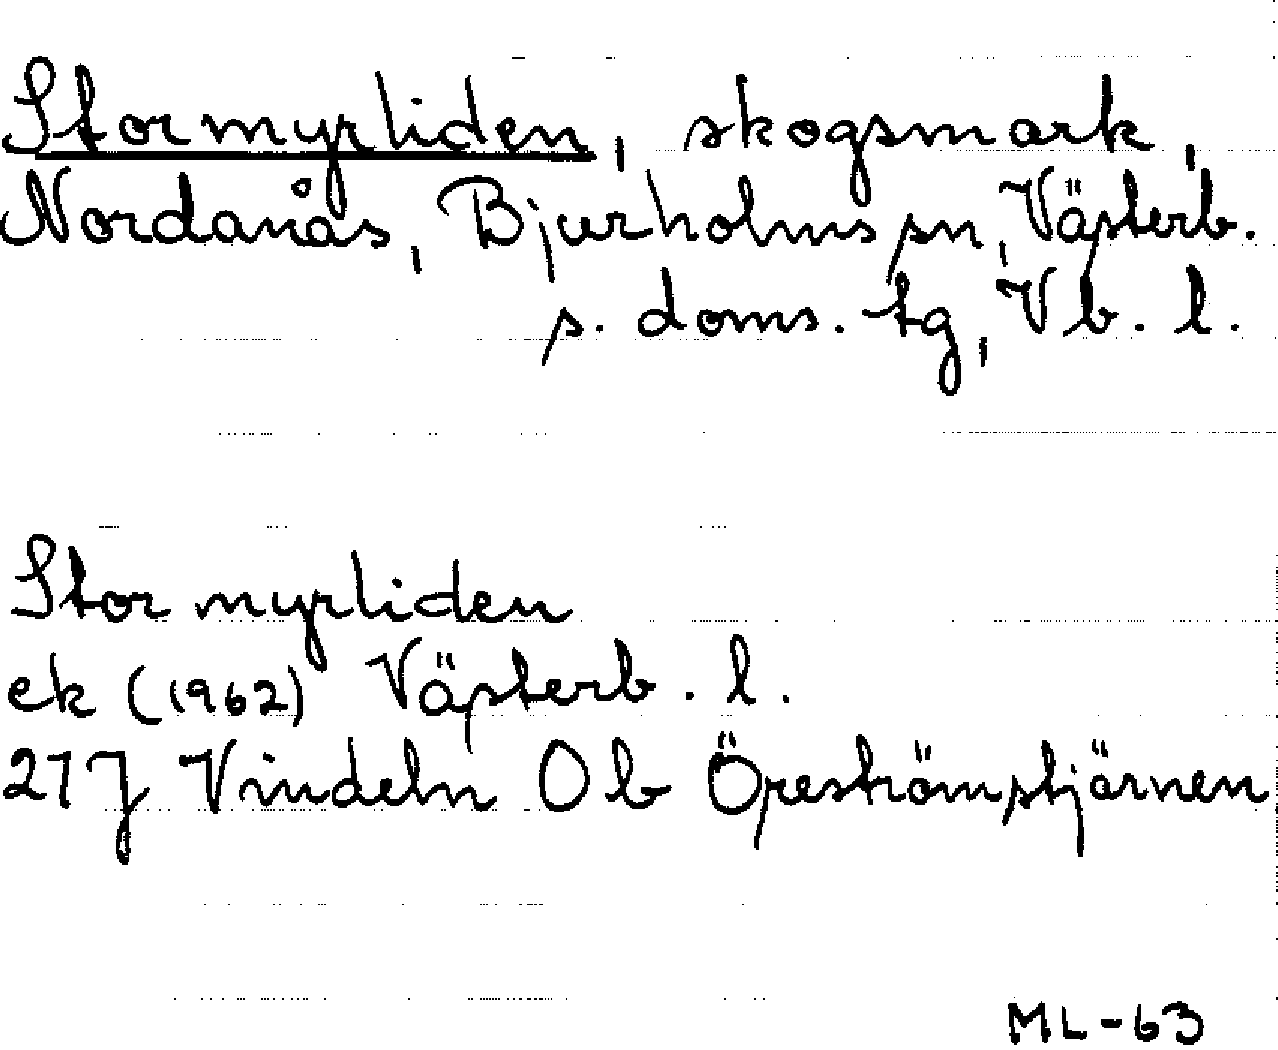 Stormyrliden, skogsmark,
Nordanås, Bjurholms sn, Västerb.
s. doms. tg, Vb. l.
Stormyrliden
ek (1962) Västerb. l.
21J Vindeln Ob Öreströmstjärnen
ML-63